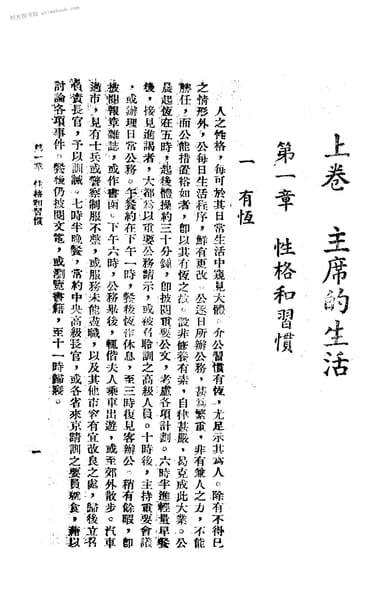 上卷　主席的生活
第一章　性格和習慣
一　有恆
人之性格，每可於其日常生活中窺見大體。介公習慣有恆，尤足示其爲人。除有不得已
之情形外，公每日生活程序，鮮有更改。公逐日所辦公務，甚爲繁重，非有兼人之力，不能
勝任，而公能措置裕如者，即以其有恆之故。設非修養有素，自律甚嚴，曷克成此大業。公
晨起恆在五時，起後體操約三十分鐘，即披閱重要公文，考慮各項計劃。六時半進輕量早餐
後，接見進謁者，大都爲以重要公務請示，或被召聆訓之高級人員。十時後，主持重要會議
，或辦理日常公務。午餐約在下午一時，餐後恆作休息，至三時復見客辦公。稍有餘暇，即
披閱報章雜誌，或作書函。下午六時，公務畢後，輒偕夫人乘車出遊，或至郊外散步。汽車
過市，見有士兵或警察制服不整，或服務未能盡職，以及其他市容有宜改良之處，歸後立召
負責長官，予以訓誡。七時半晚餐，常約中央高級長官，或各省來京請訓之要員就食，藉以
討論各項事件。餐後仍披閱文電，或瀏覽書籍，至十一時歸寢。
第一章　性格和習慣
一